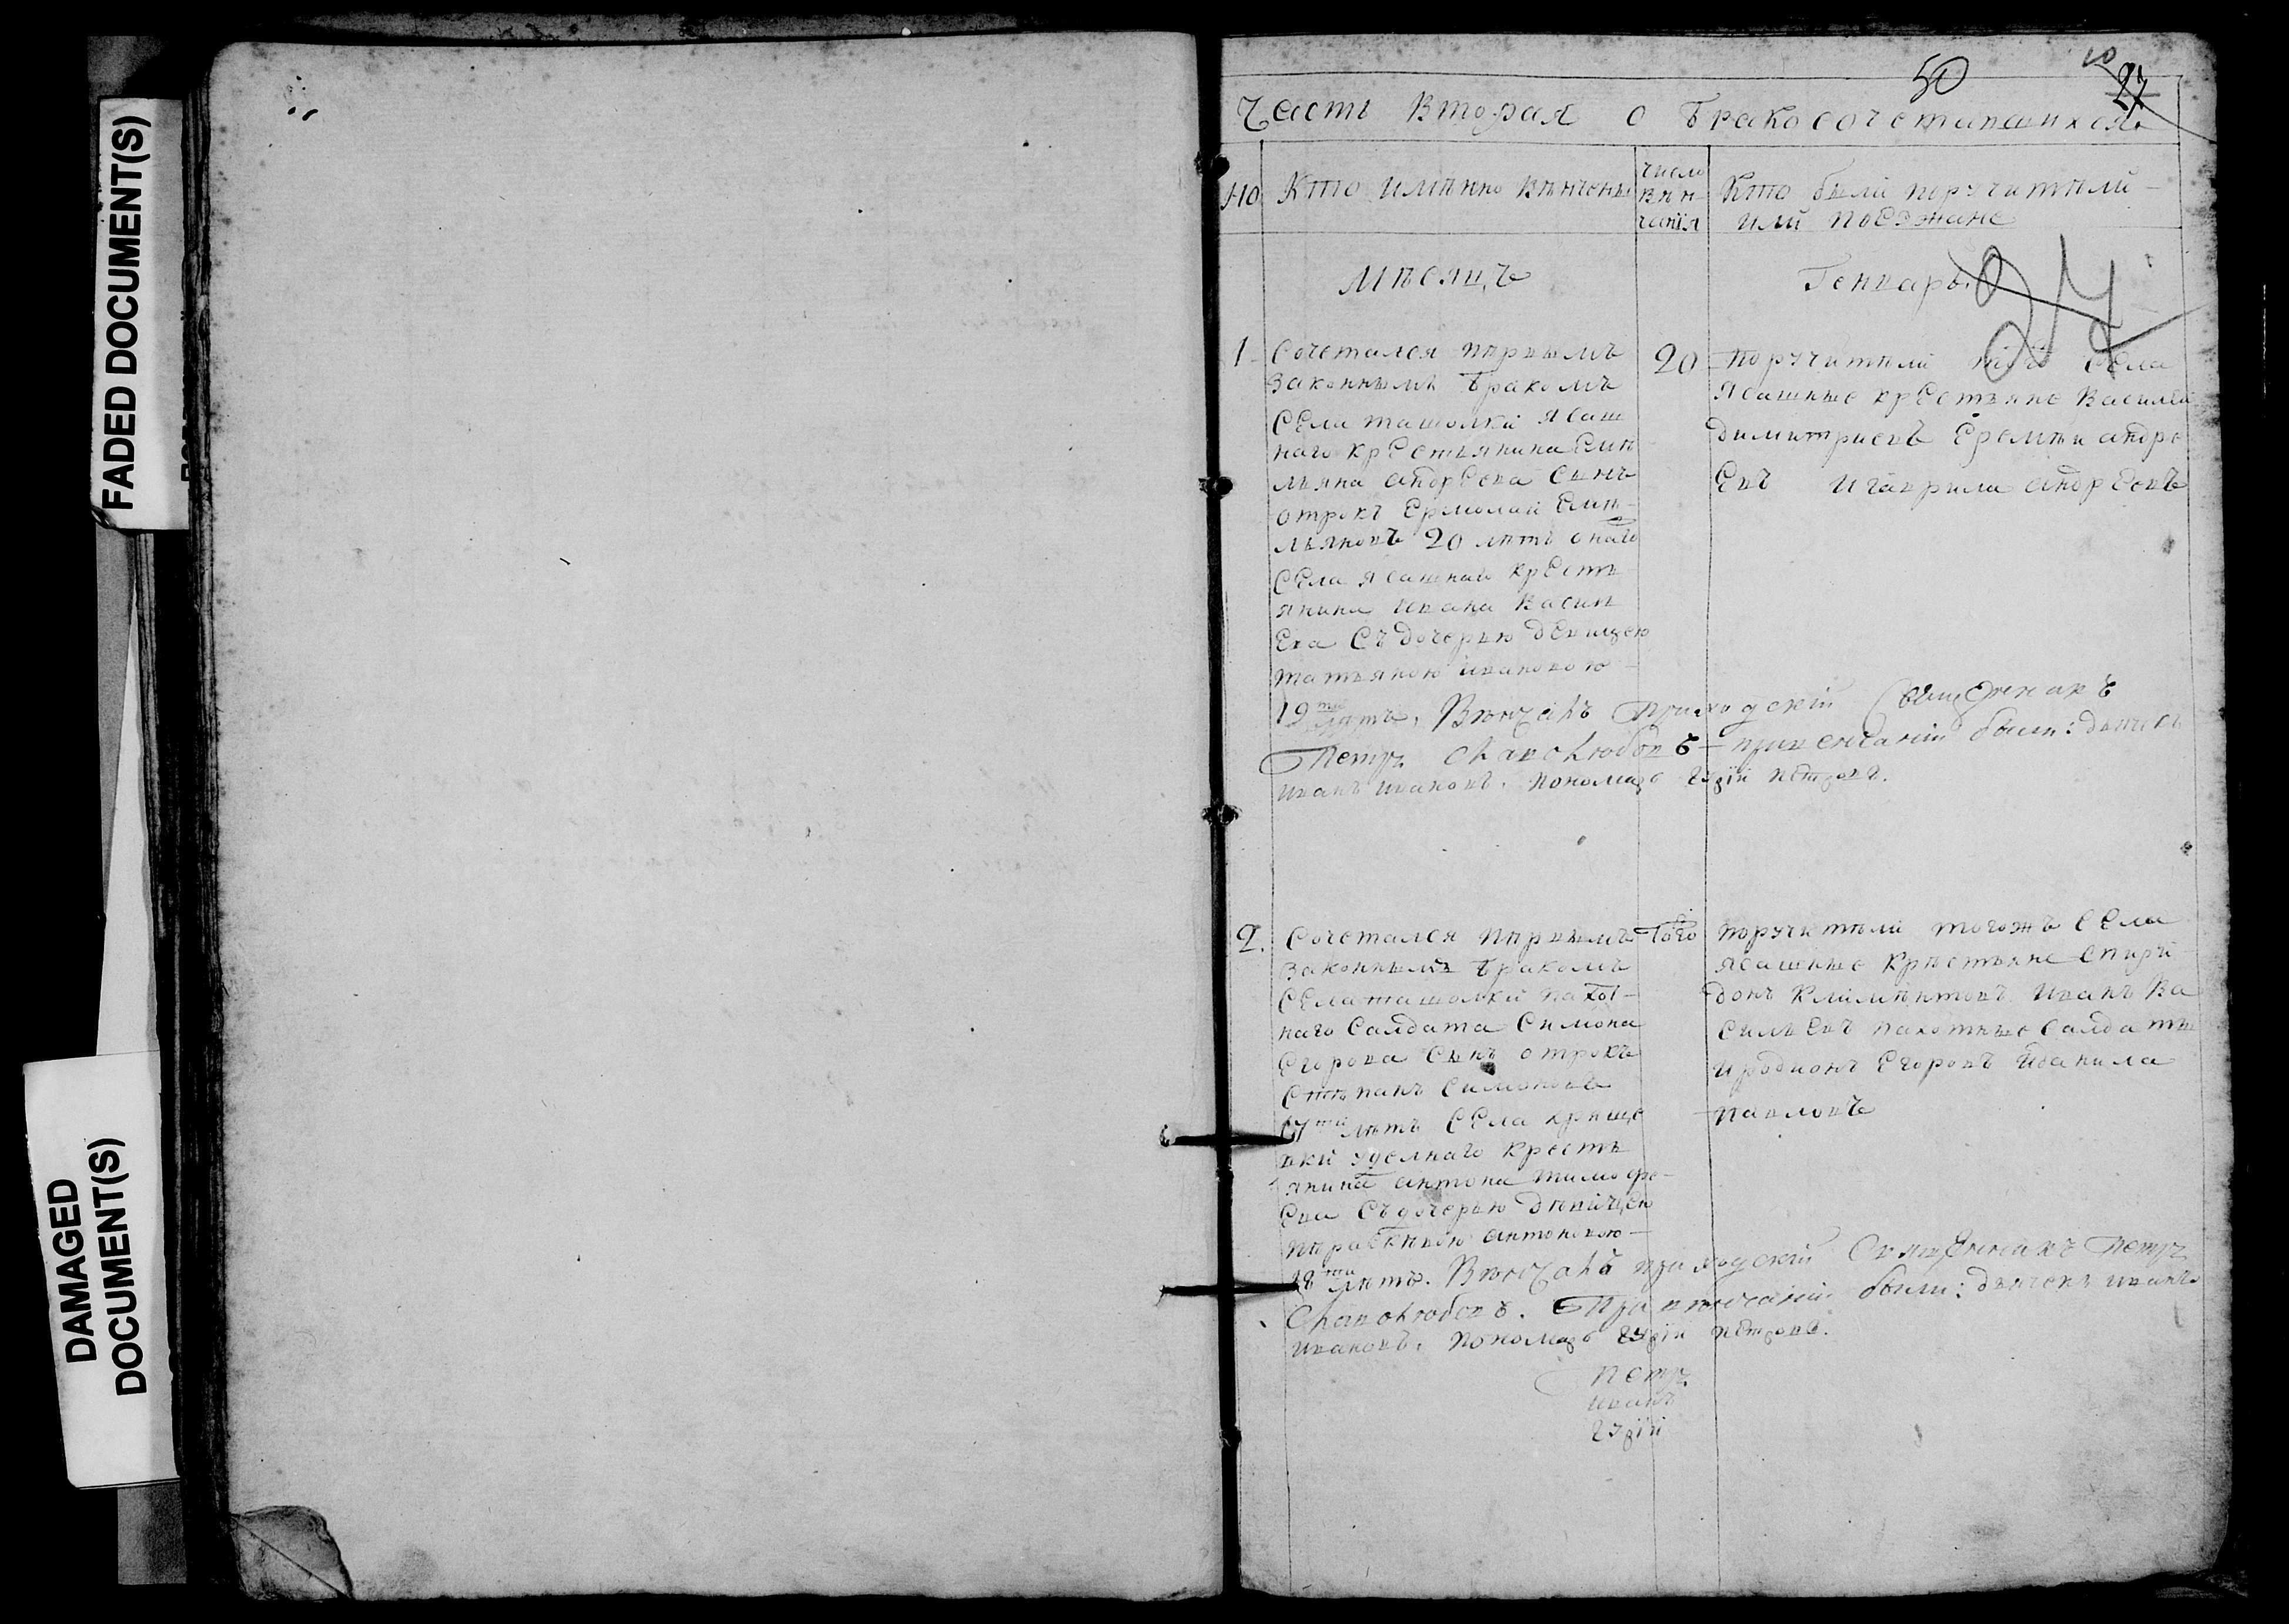 FADED DOCUMENT(S)
DAMAGED
DOCUMENT(S)
50
10
27
Часть Вторая о бракосочетавшихся
№
Кто имѣнно вѣнчены
число
вѣн-
чанія
Кто были поручитѣли-
или поезжане
Мѣсяцъ
Генварь
27
1-
Сочетался пѣрвымъ
законнымъ бракомъ
сЕла ташолки ясаш
наго крЕстьянина Емѣ
льяна андрЕева Сынъ
отрокъ Ермолай Емѣ-
льяновъ 20 лѣтъ онаго
сЕла ясашнаго крЕсть
янина ивана васил
Ева съ дочерью дЕвицею
татьяною ивановою-
19ти лѣтъ. Вѣнчалъ Приходскій Священникъ
Петръ Славолюбовъ- при венчаніи были: дьячекъ
иванъ ивановъ. пономарь гурій пЕтровъ.
20
поручитѣли того сЕла
ясашные крЕстьяне василей
димитриевъ Еремѣй андре
Евъ и гаврила андрЕевъ
2.
Сочетался пѣрвымъ
законнымъ бракомъ
сЕла ташолки пахот-
наго салдата Симона
Егорова сынъ отрокъ
Стѣпанъ Симоновъ
17ти лѣтъ сЕла крЕще
вки уделнаго кресть
янина антона тимофе-
Ева съ дочерью дѣвицею
пѣрасковѣю антоновою-
18ти лѣтъ. Вѣнчалъ приходскій Священникъ Петръ
Славолюбовъ. При вѣнчаніи были: дьячекъ иванъ
ивановъ. пономарь гурій пЕтровъ.
Того
поручитѣли тогожъ сЕла
ясашные крѣстьяне спири
донъ клімѣнтовъ иванъ ва
сильЕвъ пахотные салдаты
иродионъ Егоровъ и данила
павловъ
Петръ
иванъ
гурій